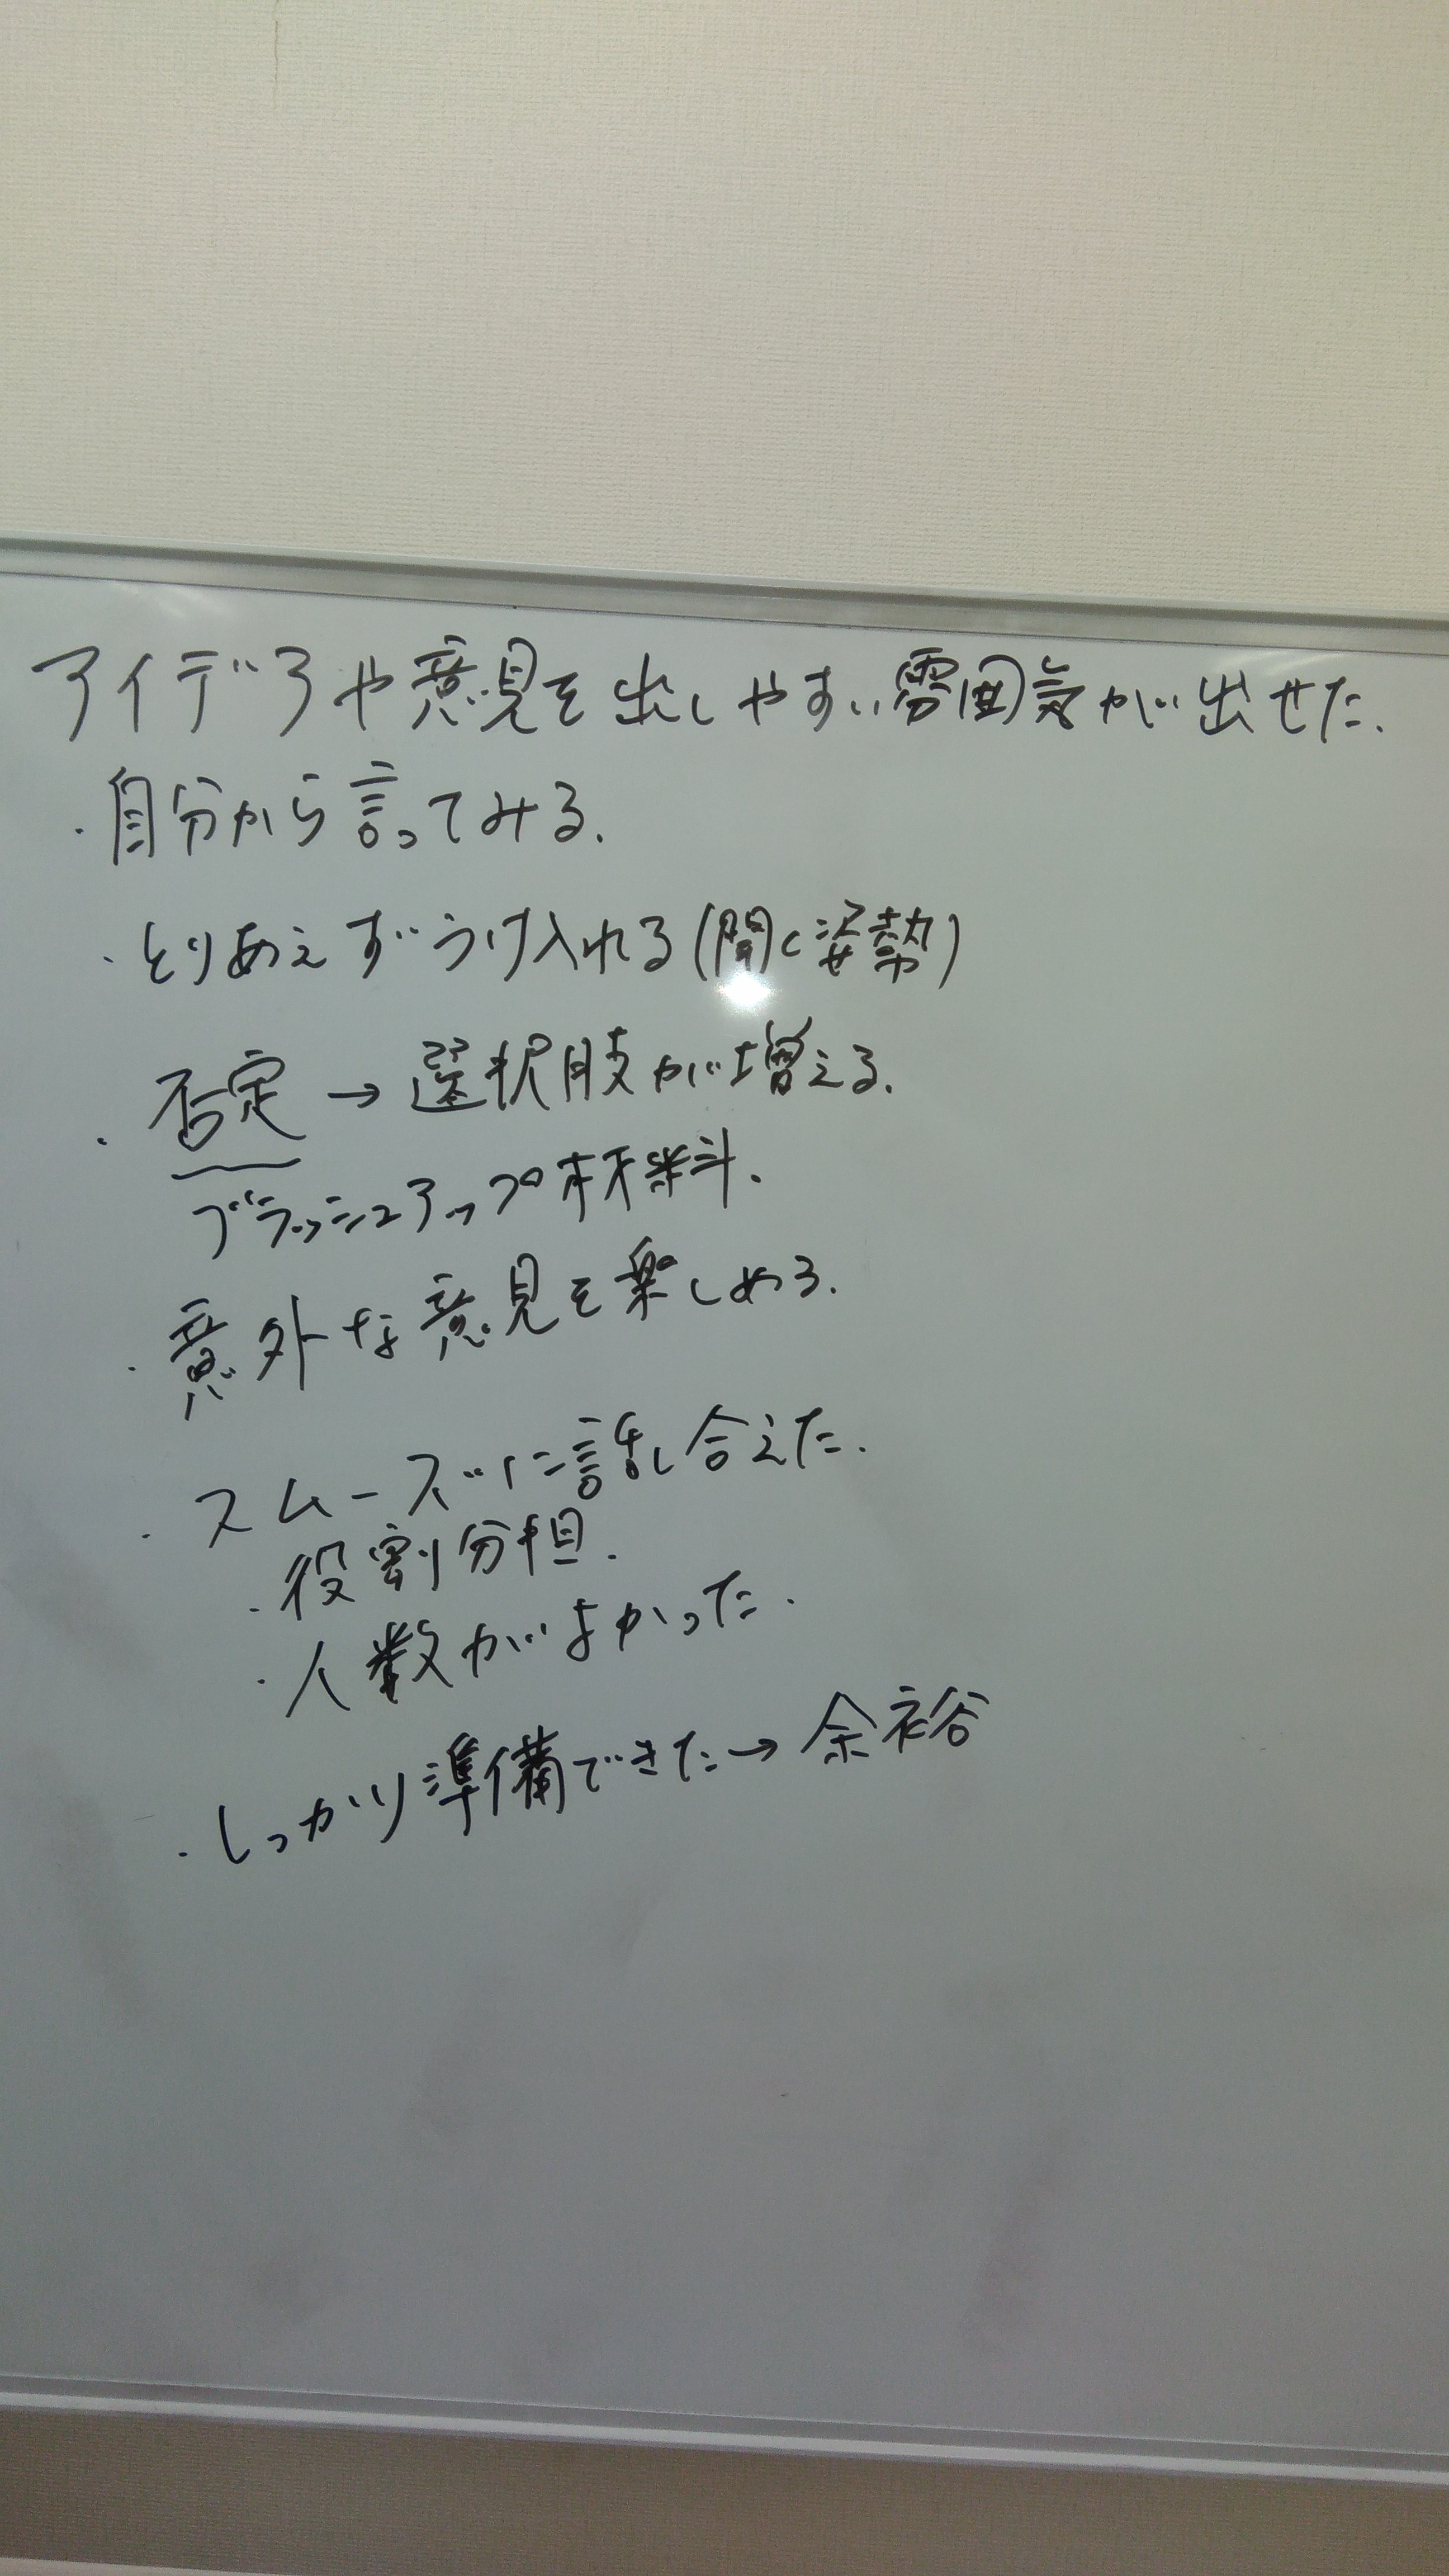 アイデアや意見を出しやすい雰囲気が出せた.
・自分から言ってみる.
・とりあえずうけ入れる(聞く姿勢)
・否定→選択肢が増える.
ブラッシュアップ材料.
・意外な意見を楽しめる.
・スムーズに話し合えた.
・役割分担.
・人数がよかった.
・しっかり準備できた→余裕